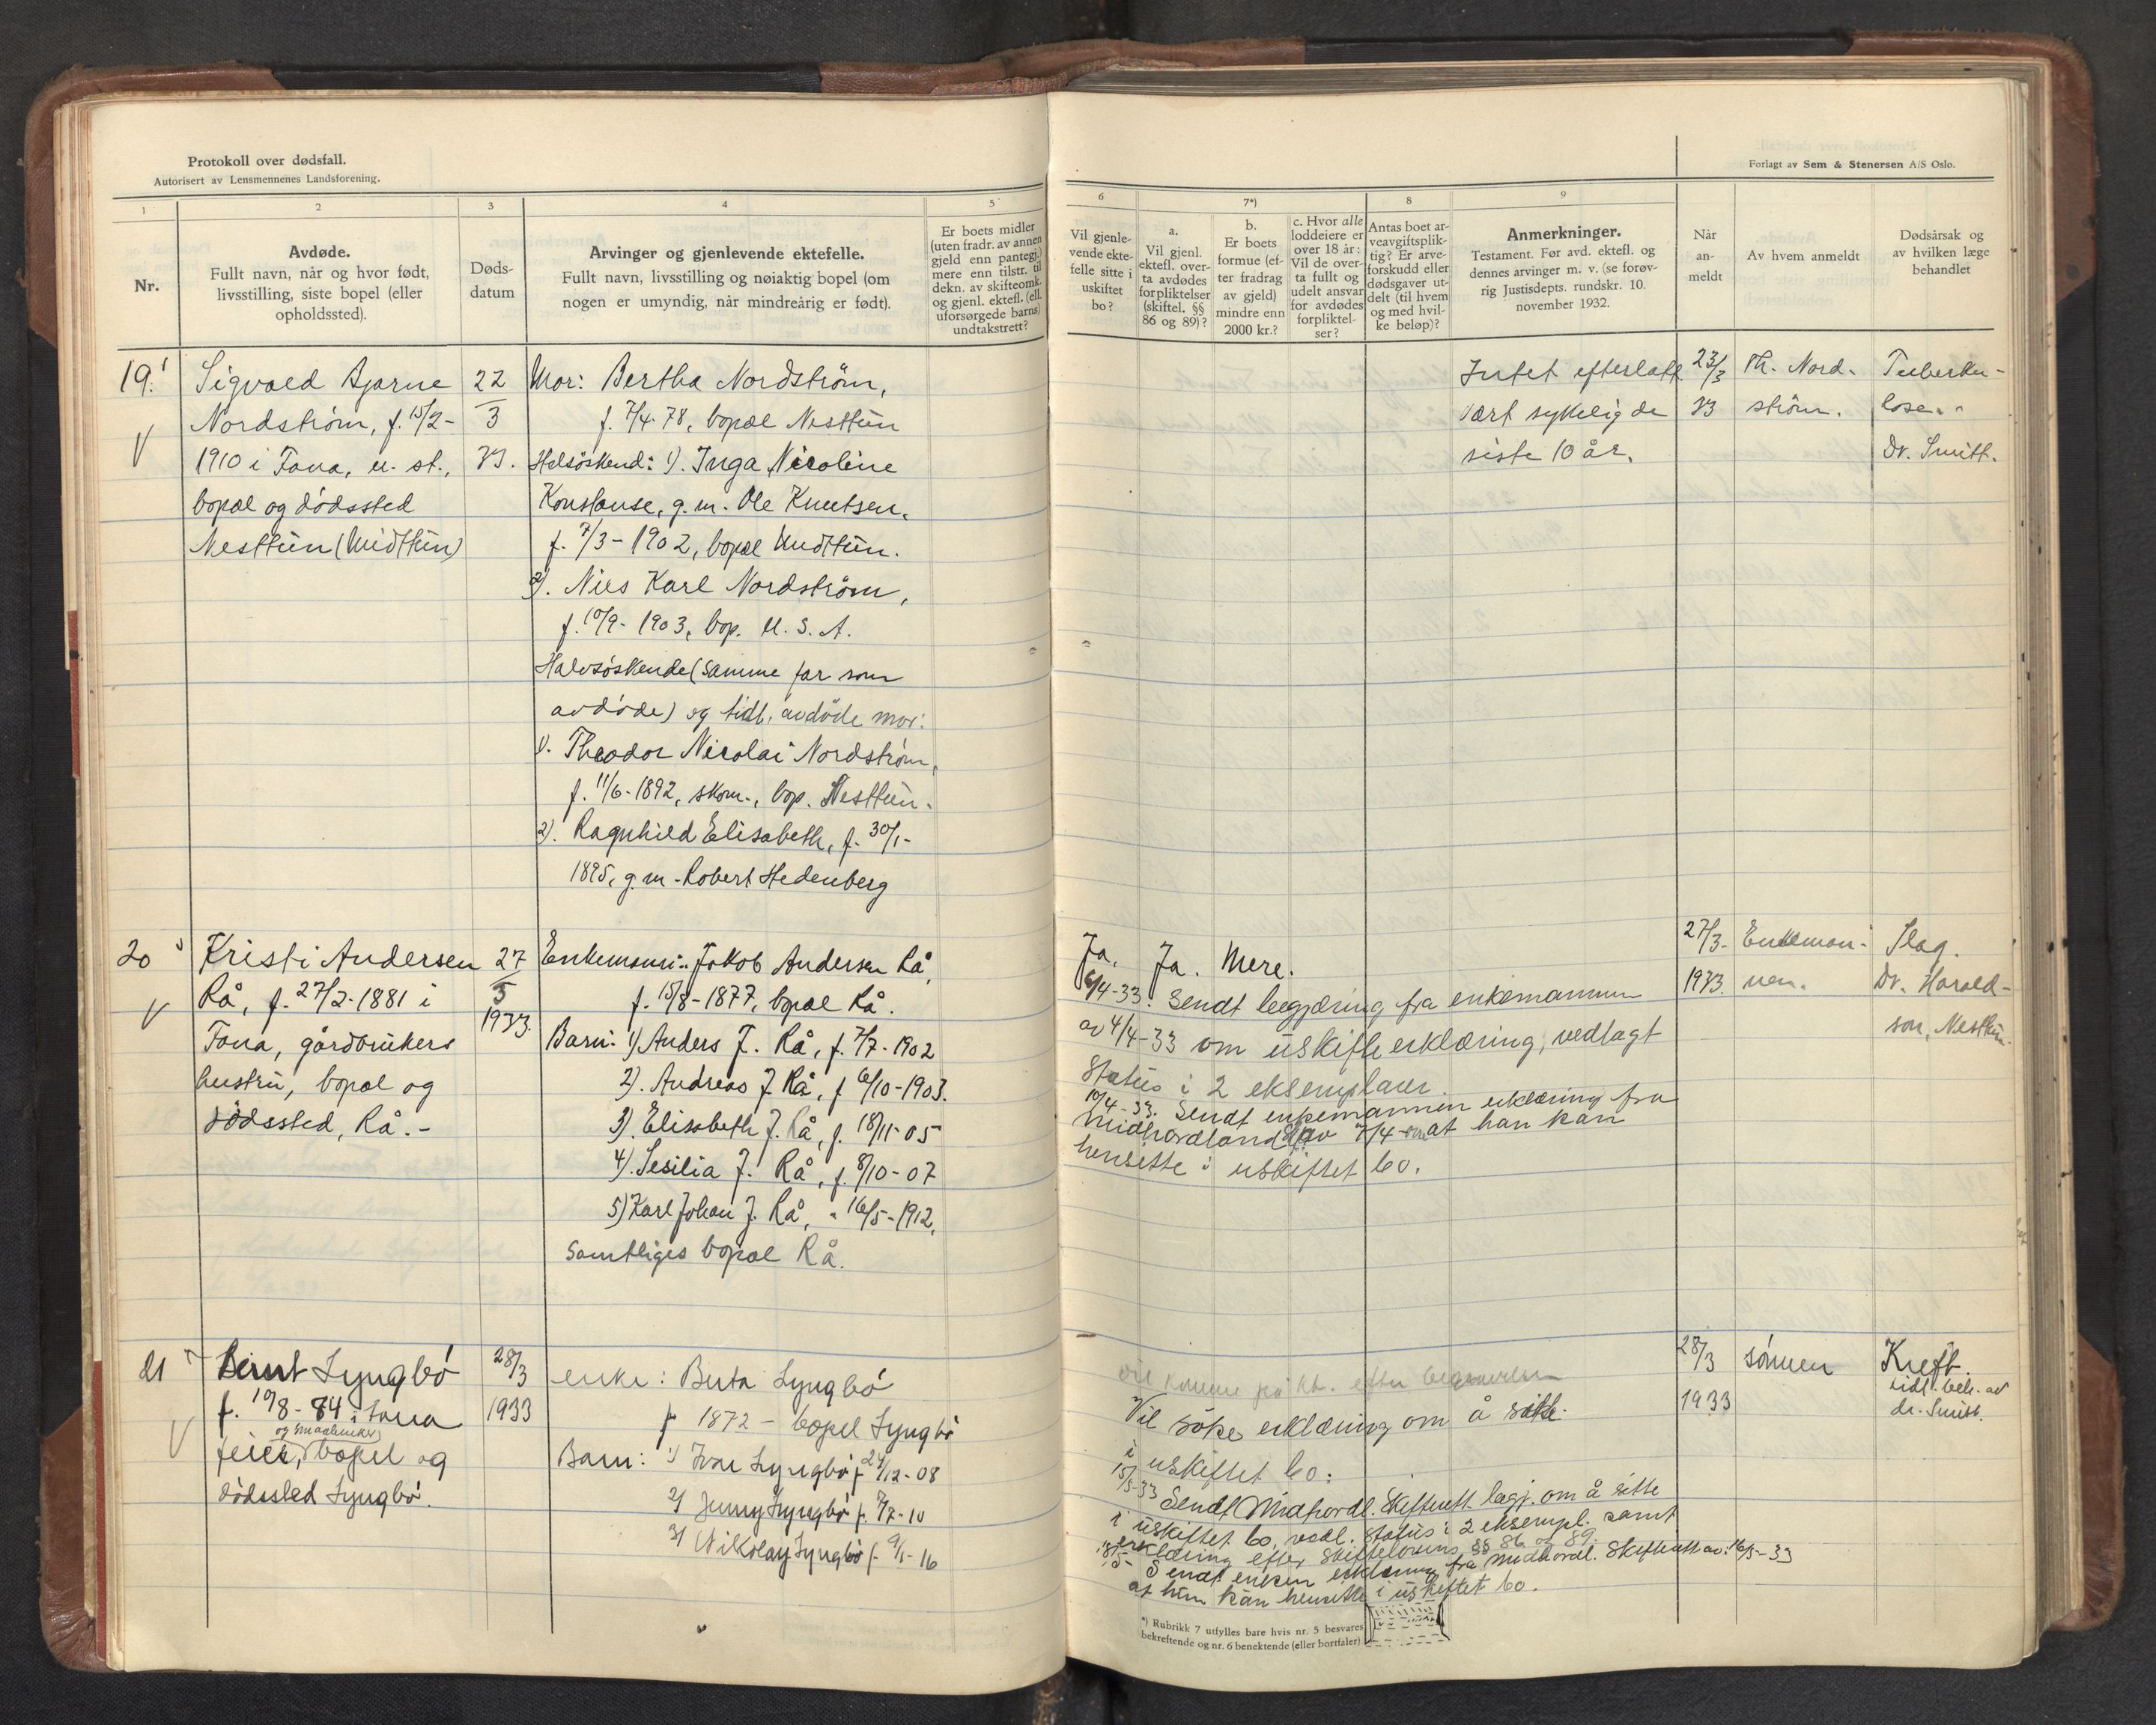 Protokoll over dødsfall.
Autorisert av Lensmennenes Landsforening.
1
2
3
4
5
Nr.
Avdøde.
Fullt navn, når og hvor født,
livsstilling, siste bopel (eller
opholdssted).
Døds-
datum
Arvinger og gjenlevende ektefelle.
Fullt navn, livsstilling og nøiaktig bopel (om
nogen er umyndig, når mindreårig er født).
Er boets midler
(uten fradr. av annen
gjeld enn pantegj.)
mere enn tilstr. til
dekn. av skifteomk.
og gjenl. ektefl. (ell.
uforsørgede barns)
undtakstrett?
19.
Sigvald Bjarne
Nordström, f. 15/2-
1910 i Fana, u. st.,
bopæl og dödssted
Nesttun (Midttun)
22
3
33.
Mor: Bertha Nordström,
f. 7/4-78, bopæl Nesttun
Helsöskend: 1). Inga Nicoline
Konstanse, g.m. Ole Knutsen,
f. 7/3-1902, bopæl Midttun.
2). Nils Karl Nordström,
f. 10/9-1903, bop. U.S.A.
Halvsöskende (samme far som
avdöde) og tidl. avdöde mor:
1). Theodor Nicolai Nordström,
f. 11/6-1892, skom., bop. Nesttun.
2). Ragnhild Elisabeth, f. 30/1-
1895, g.m. Robert Hedenberg
20
Kristi Andersen
Rå, f. 27/2-1881 i
Fana, gårdbrukers
hustru, bopæl og
dödssted, Rå.-
27
3
1933.
Enkemann: Jakob Andersen Rå,
f. 15/8-1877, bopæl Rå.
Barn: 1) Anders J. Rå, f. 7/7-1902
2). Andreas J. Rå, f 6/10-1903.
3). Elisabeth J. Rå, f. 18/11-05
4). Sesilia J. Rå, f. 8/10-07
5) Karl Johan J. Rå, " 16/5-1912.
Samtliges bopæl Rå.
21
Bernt Lyngbö
f. 10/8-84 i Fana
feier, bopel og
dödssted Lyngbö.
28/3
1933
enke: Berta Lyngbö
f 1872 - bopel Lyngbö
Barn: 1) Ivar Lyngbö f 24/12-08
2) Jenny Lyngbö f. 7/7-10
3) Nikolay Lyngbö f. 9/1-16
Forlagt av Sem & Stenersen A/S Oslo.
6
7*)
8
9
Vil gjenle-
vende ekte-
felle sitte i
uskiftet
bo?
a.
Vil gjenl.
ektefl. over-
ta avdødes
forpliktelser
(skiftel. §§
86 og 89)?
b.
Er boets
formue (ef-
ter fradrag
av gjeld)
mindre enn
2000 kr.?
c. Hvor alle
loddeiere er
over 18 år:
Vil de over-
ta fullt og
udelt ansvar
for avdødes
forpliktel-
ser?
Antas boet ar-
veavgiftsplik-
tig? Er arve-
forskudd eller
dødsgaver ut-
delt (til hvem
og med hvil-
ke beløp)?
Anmerkninger.
Testament. Før avd. ektefl. og
dennes arvinger m. v. (se forøv-
rig Justisdepts. rundskr. 10.
november 1932.
Når
an-
meldt
Av hvem anmeldt
Dødsårsak og
av hvilken læge
behandlet
Intet efterlatt.
Vært sykelig de
siste 10 år.
23/3
33
Th. Nord-
ström.
Tuberku-
lose.
Dr. Smitt.
Ja. Ja. Mere.
6/4-33. Sendt begjæring fra enkemannen
av 4/4-33 om uskifteerklæring, vedlagt
Status i 2 eksemplarer.
10/4-33. Sendt enkemannen erklæring fra
Midhordland av 7/4 om at han kan
hensitte i uskiftet bo.
27/3-
1933.
Enkeman-
nen.
Slag.
Dr. Harald-
son, Nesttun.
Vil komme på kt. efter begravelsen
Vil söke erklæring om å sitte
i uskiftet bo.
15/5-33 Sendt Midhordl. Skifterett begj. om å sitte
i uskiftet bo, vedl. status i 2 eksempl. samt
erklæring efter Skiftelovens §§ 86 og 89.
18/5- Sendt enken erklæring fra Midhordl. Skifterett av 16/5-33
at hun kan hensitte i uskiftet bo.
28/3
1933
sönnen
Kreft.
tidl. beh. av
dr. Smitt.
*) Rubrikk 7 utfylles bare hvis nr. 5 besvares
bekreftende og nr. 6 benektende (eller bortfaler).